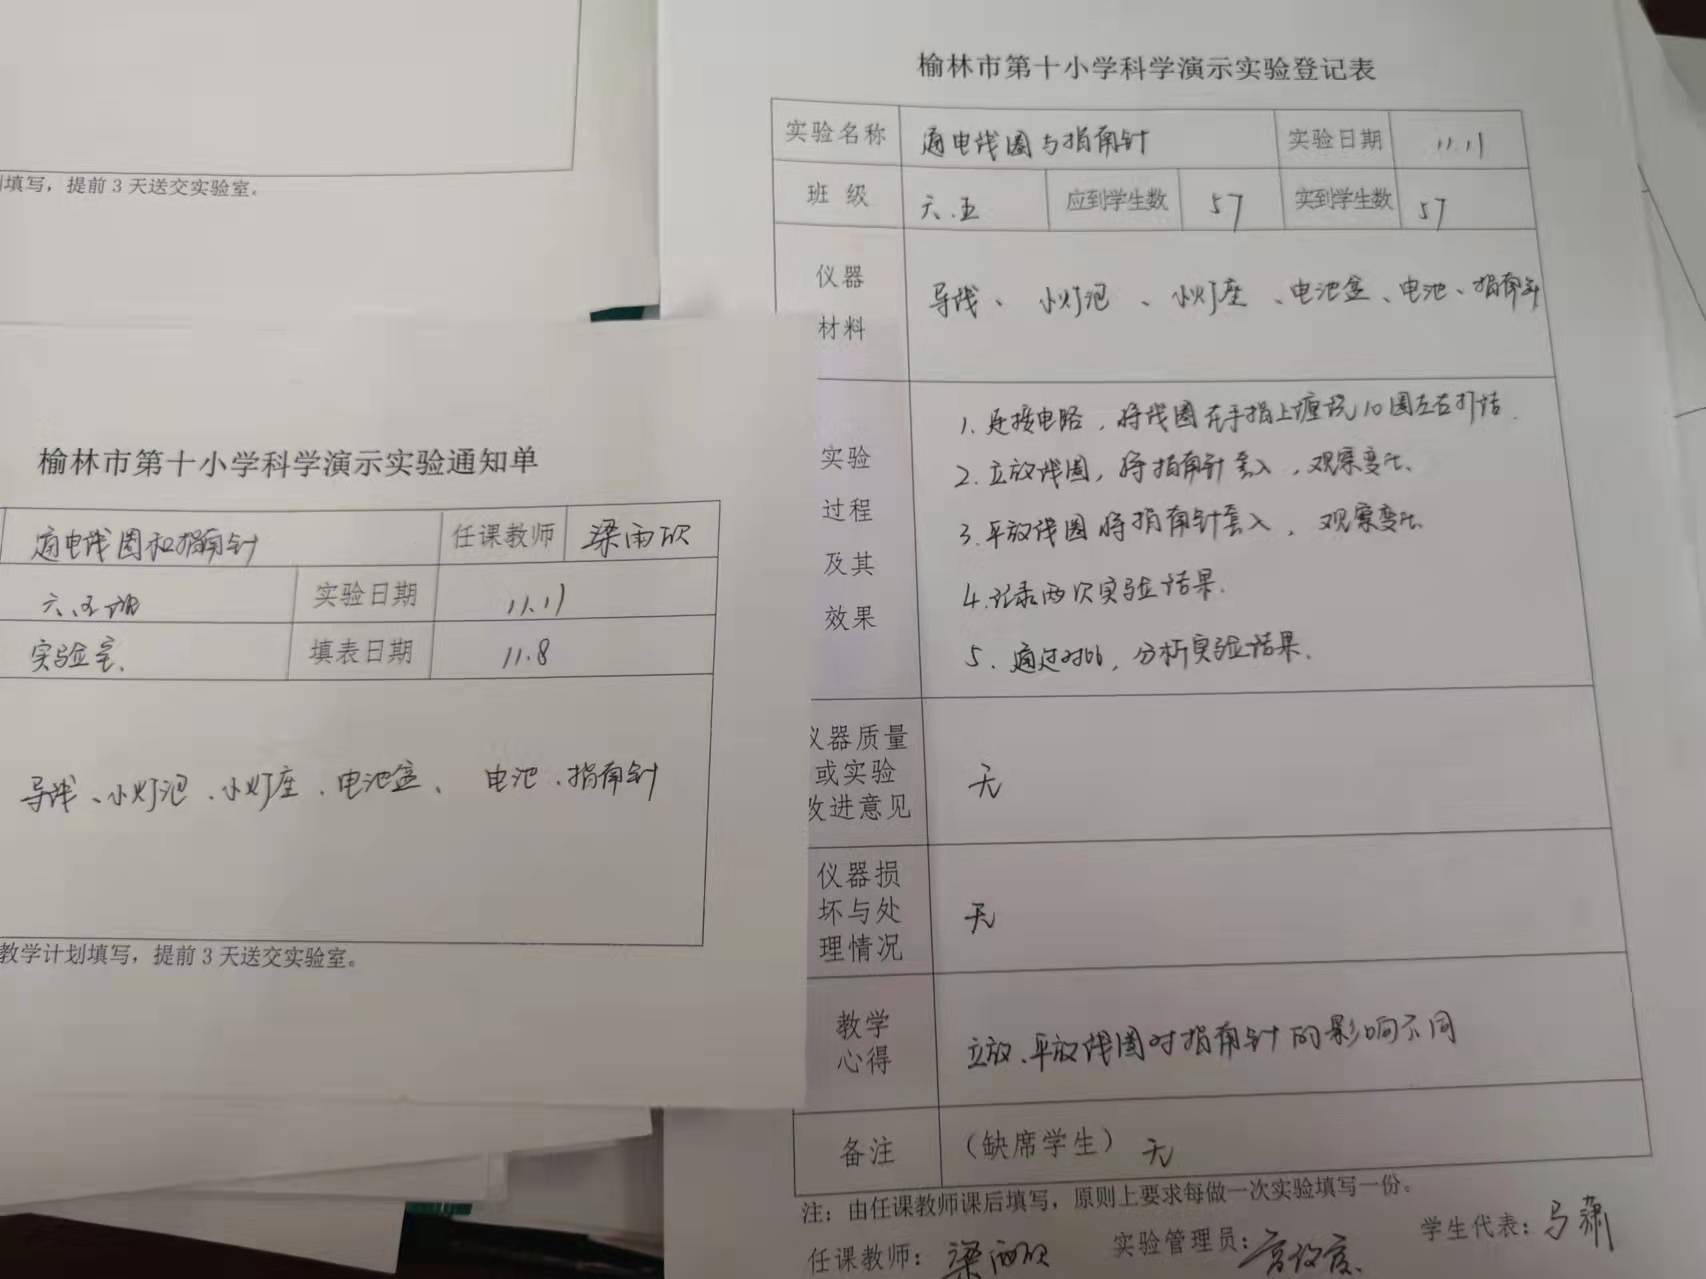 填写，提前3天送交实验室。
榆林市第十小学科学演示实验通知单
通电线圈和指南针 任课教师 梁雨欣
六.五班 实验日期 11.11
实验室. 填表日期 11.8
导线、小灯泡、小灯座、电池盒、电池、指南针
教学计划填写，提前3天送交实验室。
榆林市第十小学科学演示实验登记表
实验名称 通电线圈与指南针 实验日期 11.11
班级 六.五 应到学生数 57 实到学生数 57
仪器
材料
导线、小灯泡、小灯座、电池盒、电池、指南针
实验
过程
及其
效果
1.连接电路，将线圈在手指上缠绕10圈左右打结.
2.立放线圈，将指南针套入，观察变化.
3.平放线圈将指南针套入，观察变化.
4.记录两次实验结果.
5.通过对比，分析实验结果.
仪器质量
或实验
改进意见
无
仪器损
坏与处
理情况
无
教学
心得
立放、平放线圈对指南针的影响不同
备注 （缺席学生）无
注：由任课教师课后填写，原则上要求每做一次实验填写一份。
任课教师：梁雨欣 实验管理员： 学生代表：马萧